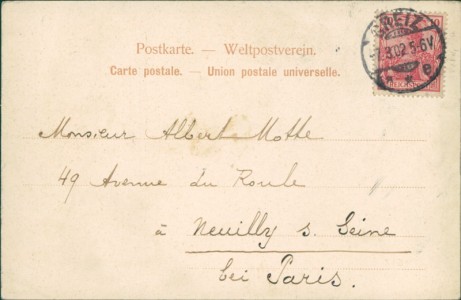 GREIZ
8.02.5-6V
* e
Postkarte. — Weltpostverein.
Carte postale. — Union postale universelle.
Monsieur Albert Motte
49 Avenue du Roule
à Neuilly s. Seine
bei Paris.